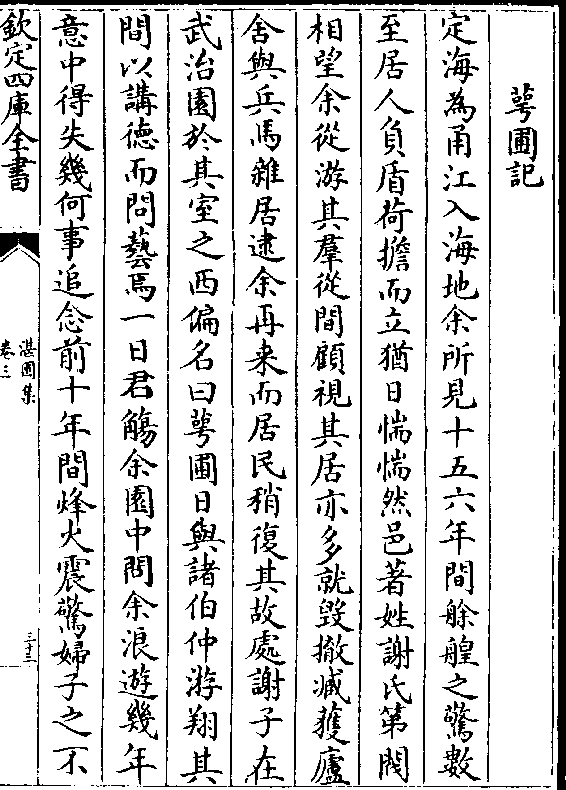 萼圃記
定海為甬江入海地余所見十五六年間艅艎之驚數
至居人負盾荷擔而立猶日惴惴然邑著姓謝氏第閥
相望余從游其羣從間顧視其居亦多就毀撤減獲廬
舍與兵馬雜居逮余再來而居民稍復其故處謝子在
武治園於其室之西偏名曰萼圃日與諸伯仲游翔其
間以講德而問藝焉一日君觴余園中問余浪遊幾年
意中得失幾何事追念前十年間烽火震驚婦子之不
欽定四庫全書
湛園集
卷三
三十三